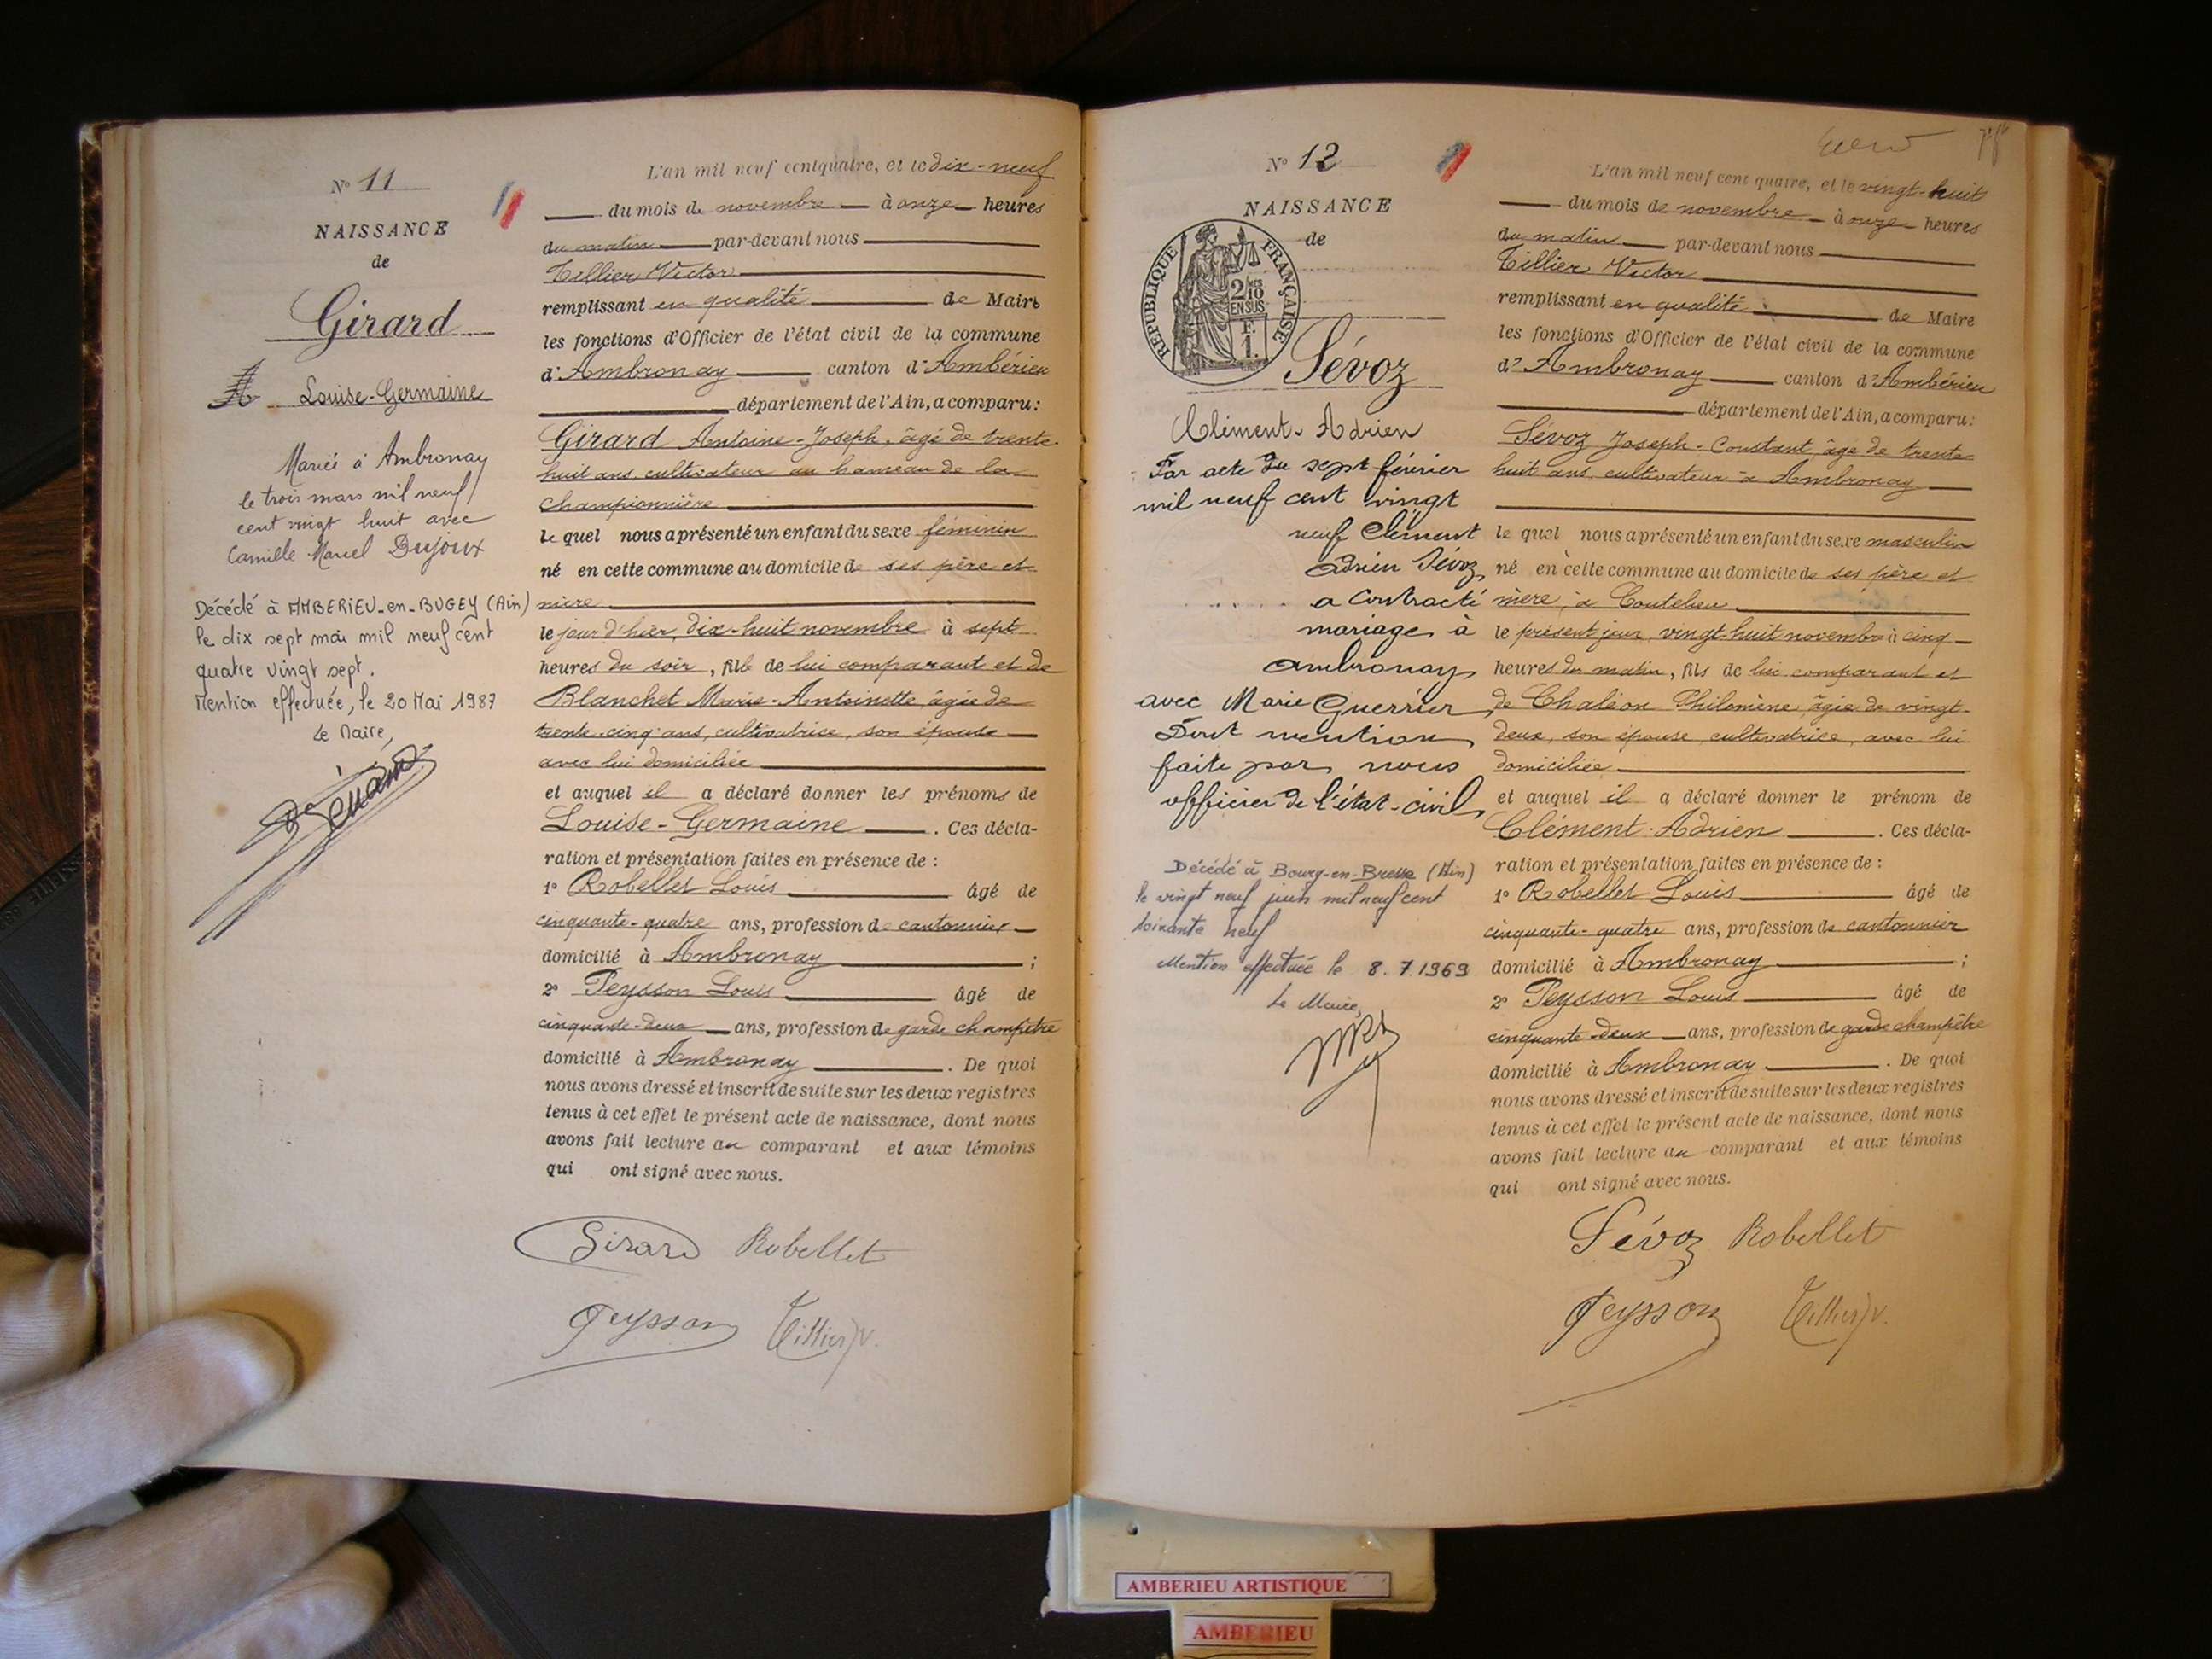 N° 11
NAISSANCE
de
Girard
Louise-Germaine
Mariée à Ambronay
le trois mars mil neuf
cent vingt huit avec
Camille Marcel Dujoux
Décédé à AMBERIEU-en-BUGEY (Ain)
le dix sept mai mil neuf cent
quatre vingt sept.
Mention effectuée, le 20 Mai 1987
Le Maire,
L'an mil neuf cent quatre, et le dix-neuf
du mois de novembre à onze heures
du matin par-devant nous
Tillier Victor
remplissant en qualité de Maire
les fonctions d'Officier de l'état civil de la commune
d'Ambronay canton d'Ambérieu
département de l'Ain, a comparu:
Girard Antoine-Joseph, âgé de trente-
huit ans, cultivateur au hameau de la
Championnière
le quel nous a présenté un enfant du sexe féminin
né en cette commune au domicile de ses père et
mère
le jour d'hier, dix-huit novembre à sept
heures du soir, fille de lui comparant et de
Blanchet Marie-Antoinette, âgée de
trente-cinq ans, cultivatrice, son épouse
avec lui domiciliée
et auquel il a déclaré donner les prénoms de
Louise-Germaine. Ces décla-
ration et présentation faites en présence de :
1° Robellet Louis âgé de
cinquante-quatre ans, profession de cantonnier
domicilié à Ambronay ;
2° Peysson Louis âgé de
cinquante-deux ans, profession de garde champêtre
domicilié à Ambronay. De quoi
nous avons dressé et inscrit de suite sur les deux registres
tenus à cet effet le présent acte de naissance, dont nous
avons fait lecture au comparant et aux témoins
qui ont signé avec nous.
Girard Robellet
Peysson Tillier V.
N° 12
NAISSANCE
de
RÉPUBLIQUE FRANÇAISE
2/10
EN SUS
F.
1.
Sévoz
Clément-Adrien
Par acte du sept février
mil neuf cent vingt
neuf Clément
Adrien Sévoz
a contracté
mariage à
Ambronay
avec Marie Guerrier
Dont mention
faite par nous
officier de l'état-civil
Décédé à Bourg-en-Bresse (Ain)
le vingt neuf juin mil neuf cent
soixante neuf
Mention effectuée le 8.7.1969
Le Maire,
L'an mil neuf cent quatre, et le vingt-huit
du mois de novembre à onze heures
du matin par-devant nous
Tillier Victor
remplissant en qualité de Maire
les fonctions d'Officier de l'état civil de la commune
d'Ambronay canton d'Ambérieu
département de l'Ain, a comparu:
Sévoz Joseph-Constant âgé de trente-
huit ans, cultivateur à Ambronay
le quel nous a présenté un enfant du sexe masculin
né en cette commune au domicile de ses père et
mère, à Coutelieu
le présent jour, vingt-huit novembre à cinq
heures du matin, fils de lui comparant et
de Chaléon Philomène, âgée de vingt-
deux, son épouse, cultivatrice, avec lui
domiciliée
et auquel il a déclaré donner le prénom de
Clément-Adrien. Ces décla-
ration et présentation faites en présence de :
1° Robellet Louis âgé de
cinquante-quatre ans, profession de cantonnier
domicilié à Ambronay ;
2° Peysson Louis âgé de
cinquante-deux ans, profession de garde champêtre
domicilié à Ambronay. De quoi
nous avons dressé et inscrit de suite sur les deux registres
tenus à cet effet le présent acte de naissance, dont nous
avons fait lecture au comparant et aux témoins
qui ont signé avec nous.
Sévoz Robellet
Peysson Tillier V.
AMBERIEU ARTISTIQUE
AMBERIEU